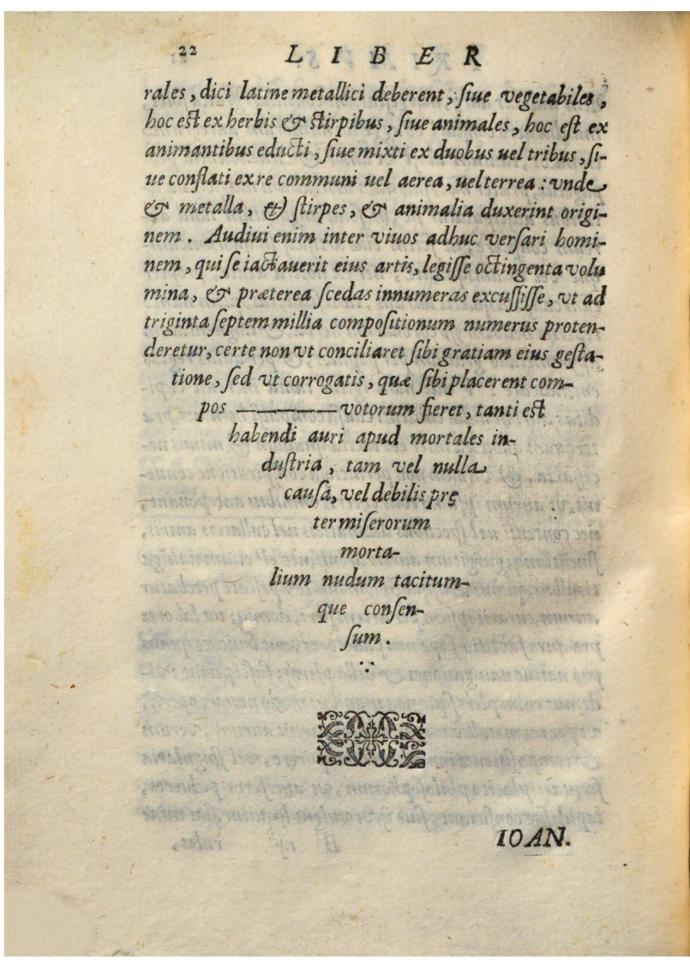 22 LIBER
rales, dici latine metallici deberent, ſiue vegetabiles,
hoc est ex herbis & stirpibus, ſiue animales, hoc est ex
animantibus educti, ſiue mixti ex duobus uel tribus, ſi-
ue conflati ex re communi uel aerea, uel terrea: vnde
& metalla, & ſtirpes, & animalia duxerint origi-
nem. Audiui enim inter viuos adhuc verſari homi-
nem, qui ſe iactauerit eius artis, legiſſe octingenta volu
mina, & præterea ſcedas innumeras excuſſiſſe, vt ad
triginta ſeptem millia compoſitionum numerus proten-
deretur, certe non vt conciliaret ſibi gratiam eius geſta-
tione, ſed vt corrogatis, quæ ſibi placerent com-
pos ———— votorum fieret, tanti est
habendi auri apud mortales in-
duſtria, tam vel nulla
cauſa, vel debilis prę
ter miſerorum
morta-
lium nudum tacitum-
que conſen-
ſum.
IOAN.